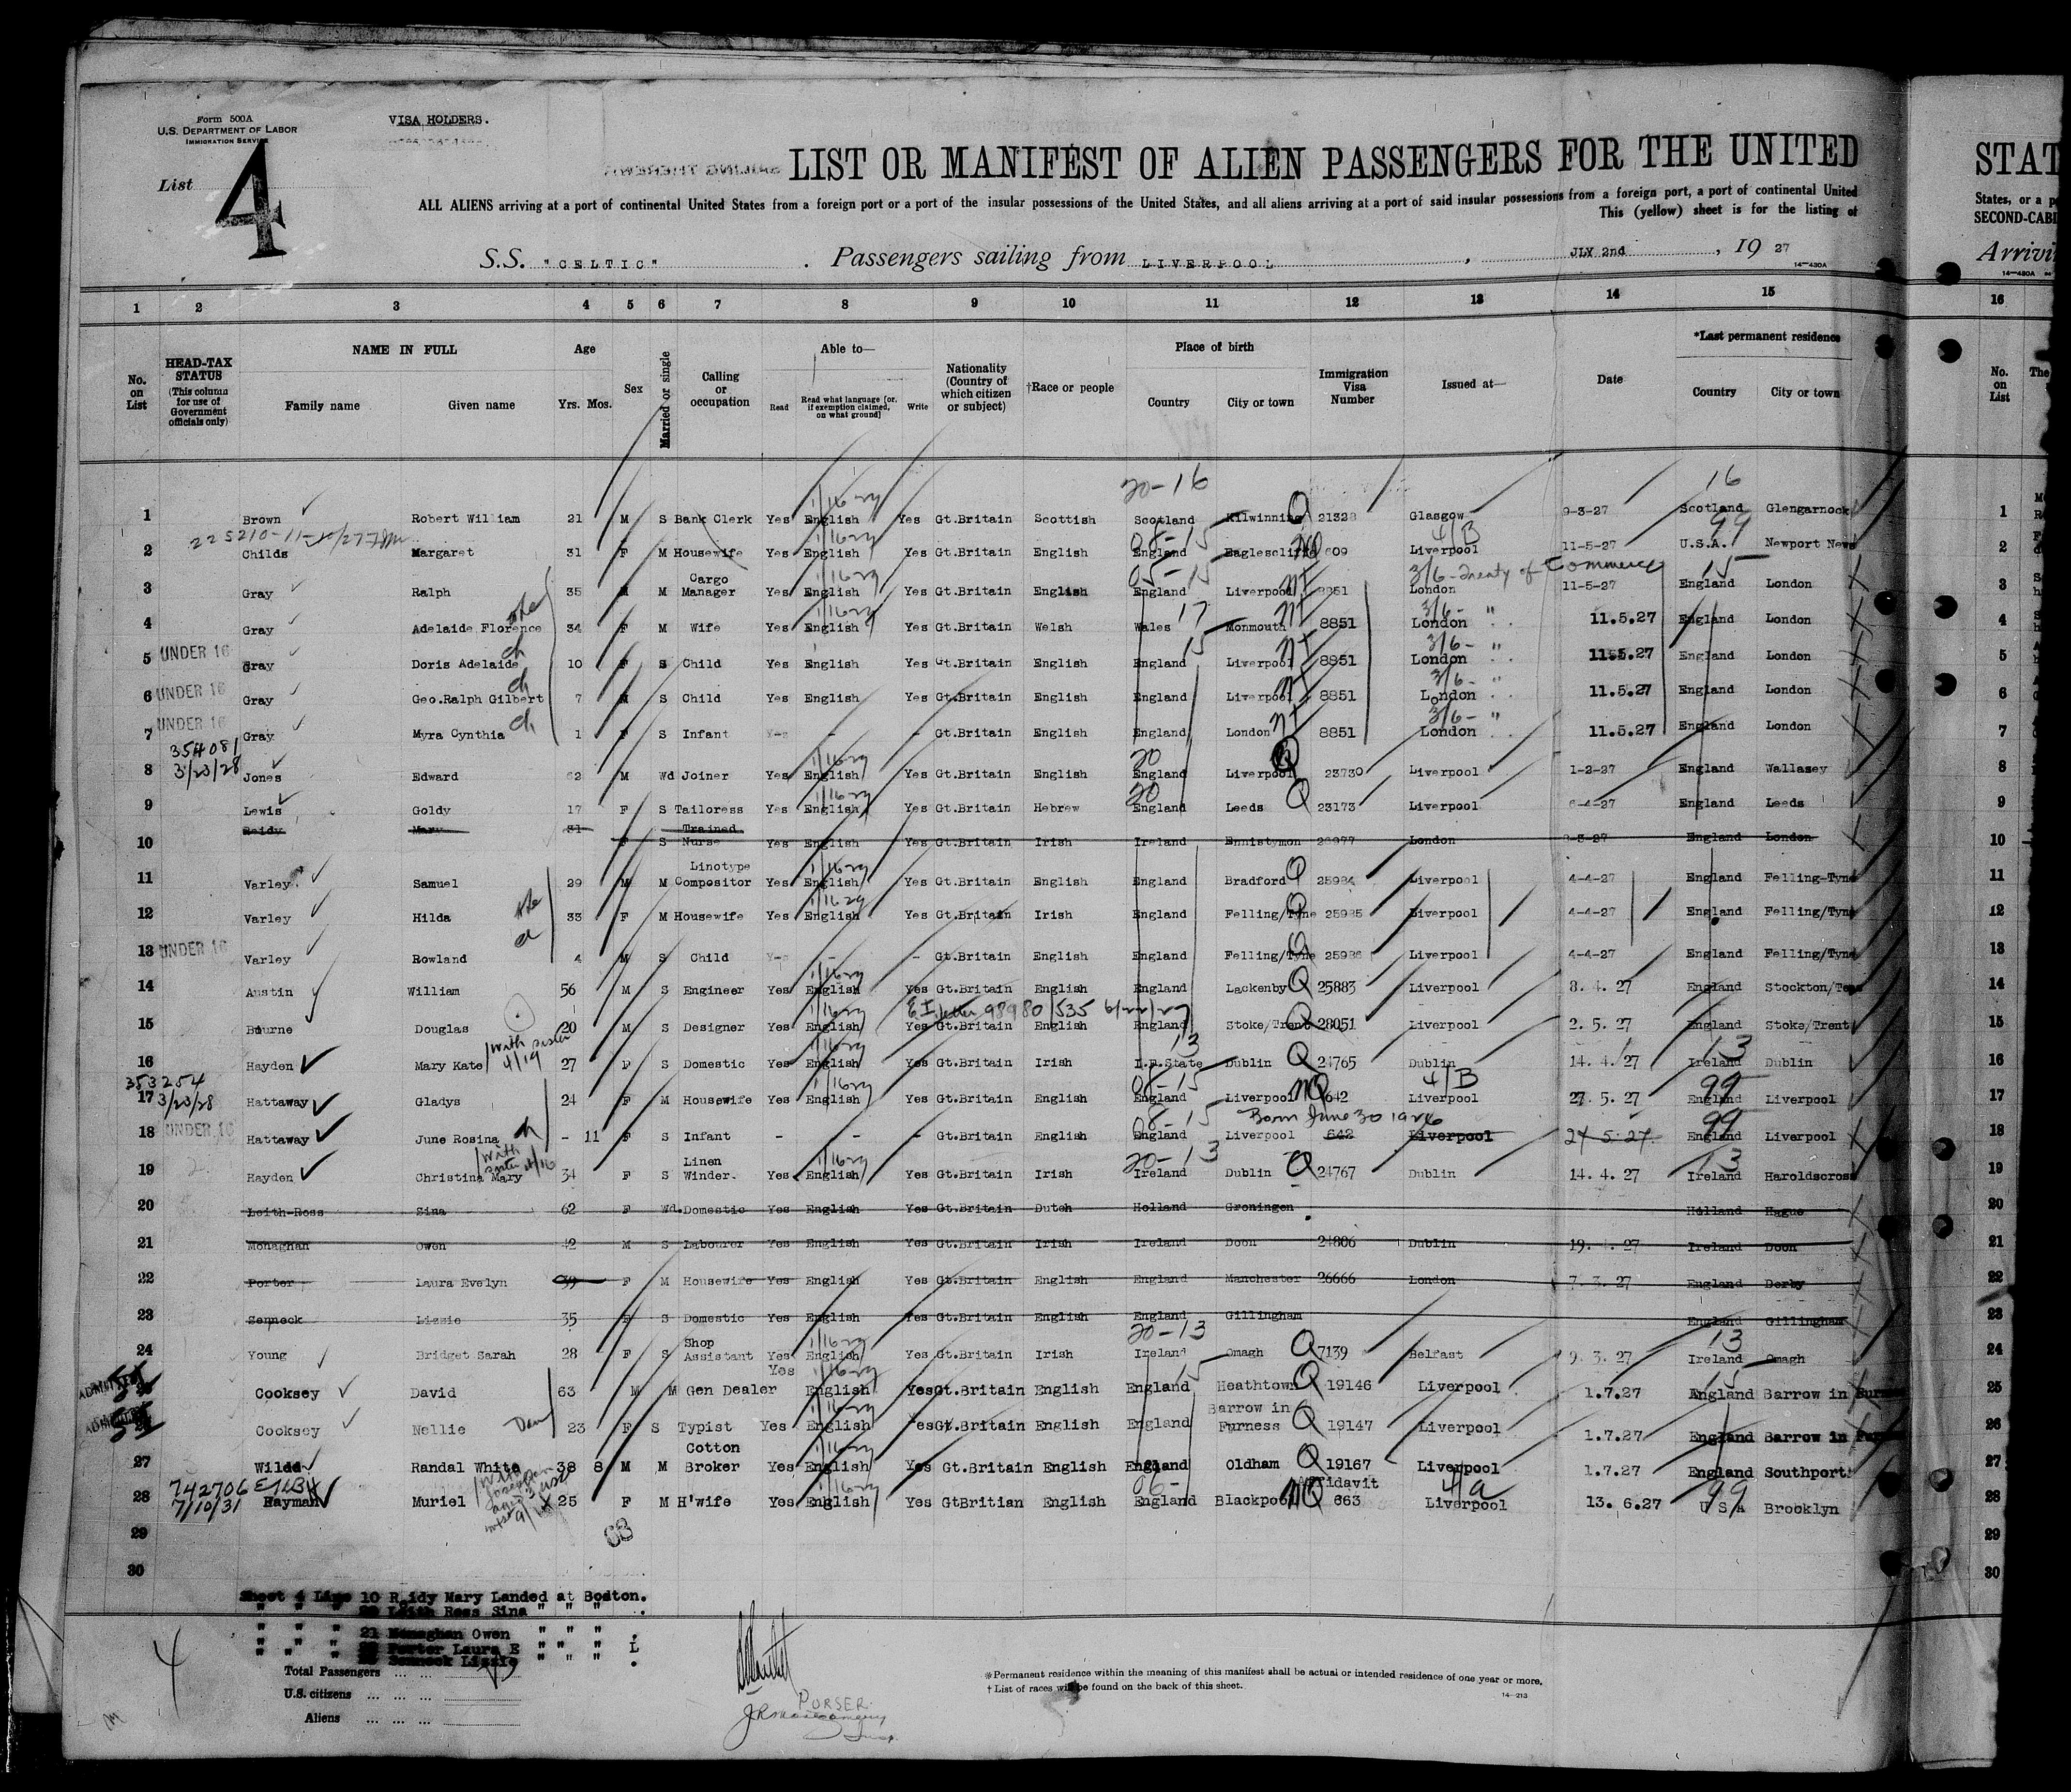 Form 500A
U.S. DEPARTMENT OF LABOR
IMMIGRATION SERVICE
VISA HOLDERS.
List 4
LIST OR MANIFEST OF ALIEN PASSENGERS FOR THE UNITED
STAT
ALL ALIENS arriving at a port of continental United States from a foreign port or a port of the insular possessions of the United States, and all aliens arriving at a port of said insular possessions from a foreign port, a port of continental United
States, or a
This (yellow) sheet is for the listing of
SECOND-CABI
S.S. "CELTIC" . Passengers sailing from LIVERPOOL , JLY 2nd , 19 27
Arrivi
14-430A
1 2 3 4 5 6 7 8 9 10 11 12 13 14 15 16
No. on List
HEAD-TAX STATUS (This column for use of Government officials only)
NAME IN FULL
Family name Given name
Age Yrs. Mos.
Sex
Married or single
Calling or occupation
Able to—
Read Read what language [or, if exemption claimed, on what ground] Write
Nationality (Country of which citizen or subject)
†Race or people
Place of birth
Country City or town
Immigration Visa Number
Issued at—
Date
*Last permanent residence
Country City or town
No. on List
20-16 16
1 Brown Robert William 21 M S Bank Clerk Yes English Yes Gt.Britain Scottish Scotland Kilwinning Q 21328 Glasgow 9-3-27 Scotland Glengarnock 1
08-15 4/B 99
2 Childs Margaret 31 F M Housewife Yes English Yes Gt.Britain English England Eaglescliffe NQ 609 Liverpool 11-5-27 U.S.A. Newport News 2
05-15 3/6-Treaty of Commerce 15
3 Gray Ralph 35 M M Cargo Manager Yes English Yes Gt.Britain English England Liverpool 8851 London 11-5-27 England London 3
17 3/6- "
4 Gray Adelaide Florence 34 F M Wife Yes English Yes Gt.Britain Welsh Wales Monmouth 8851 London 11.5.27 England London 4
15 3/6- "
5 UNDER 16 Gray Doris Adelaide ch 10 F S Child Yes English Yes Gt.Britain English England Liverpool 8851 London 11.5.27 England London 5
3/6- "
6 UNDER 16 Gray Geo.Ralph Gilbert ch 7 M S Child Yes English Yes Gt.Britain English England Liverpool 8851 London 11.5.27 England London 6
3/6- "
7 UNDER 16 Gray Myra Cynthia ch 1 F S Infant - - Gt.Britain English England London 8851 London 11.5.27 England London 7
354081
3/23/28
20
8 Jones Edward 62 M Wd Joiner Yes English Yes Gt.Britain English England Liverpool Q 23730 Liverpool 1-2-27 England Wallasey 8
20
9 Lewis Goldy 17 F S Tailoress Yes English Yes Gt.Britain Hebrew England Leeds Q 23173 Liverpool 6-4-27 England Leeds 9
10 Reidy Mary 31 F S Trained Nurse Yes English Yes Gt.Britain Irish Ireland Ennistymon 26977 London England London 10
11 Varley Samuel 29 M M Linotype Compositor Yes English Yes Gt.Britain English England Bradford Q 25984 Liverpool 4-4-27 England Felling-Tyne 11
12 Varley Hilda 33 F M Housewife Yes English Yes Gt.Britain Irish England Felling/Tyne Q 25985 Liverpool 4-4-27 England Felling/Tyne 12
13 UNDER 16 Varley Rowland 4 M S Child - - Gt.Britain English England Felling/Tyne Q 25986 Liverpool 4-4-27 England Felling/Tyne 13
14 Austin William 56 M S Engineer Yes English Yes Gt.Britain English England Lackenby Q 25883 Liverpool 8. 4. 27 England Stockton/Tees 14
15 Bourne Douglas 20 M S Designer Yes English Yes Gt.Britain English England Stoke/Trent Q 28051 Liverpool 2. 5. 27 England Stoke/Trent 15
With sister 4/19 13 13
16 Hayden Mary Kate 27 F S Domestic Yes English Yes Gt.Britain Irish I.F.State Dublin Q 24765 Dublin 14. 4. 27 Ireland Dublin 16
353254
3/23/28
08-15 4/B 99
17 Hattaway Gladys 24 F M Housewife Yes English Yes Gt.Britain English England Liverpool NQ 642 Liverpool 27. 5. 27 England Liverpool 17
08-15 Born June 30 1926 99
18 UNDER 16 Hattaway June Rosina ch - 11 F S Infant - - - Gt.Britain English England Liverpool 642 Liverpool 27 5 27 England Liverpool 18
With sister 4/16 20-13 13
19 Hayden Christina Mary 34 F S Linen Winder. Yes English Yes Gt.Britain Irish Ireland Dublin Q 24767 Dublin 14. 4. 27 Ireland Haroldscross 19
20 Leith-Ross Sina 62 F Wd. Domestic Yes English Yes Gt.Britain Dutch Holland Groningen Holland Hague 20
21 Monaghan Owen 42 M S Labourer Yes English Yes Gt.Britain Irish Ireland Doon 24806 Dublin 19. 4. 27 Ireland Doon 21
22 Porter Laura Evelyn 39 F M Housewife Yes English Yes Gt.Britain English England Manchester 26666 London 7. 3. 27 England Derby 22
23 Senneck Lizzie 35 F S Domestic Yes English Yes Gt.Britain English England Gillingham England Gillingham 23
20-13 13
24 Young Bridget Sarah 28 F S Shop Assistant Yes English Yes Gt.Britain Irish Ireland Omagh Q 7139 Belfast 9. 3. 27 Ireland Omagh 24
ADMITTED
15 15
25 Cooksey David 63 M M Gen Dealer Yes English Yes Gt.Britain English England Heathtown Q 19146 Liverpool 1.7.27 England Barrow in Furness 25
ADMITTED
26 Cooksey Nellie Dau 23 F S Typist Yes English Yes Gt.Britain English England Barrow in Furness Q 19147 Liverpool 1.7.27 England Barrow in Furness 26
27 Wilde Randal White 38 8 M M Cotton Broker Yes English Yes Gt.Britain English England Oldham Q 19167 Liverpool 1.7.27 England Southport 27
742706
7/10/31
06- Affidavit 4/a 99
28 Hayman Muriel 25 F M H'wife Yes English Yes GtBritian English England Blackpool NQ 663 Liverpool 13. 6.27 U S A Brooklyn 28
29 29
30 30
Sheet 4 Line 10 Reidy Mary Landed at Boston.
" " " 20 Leith Ross Sina " " " .
" " " 21 Monaghan Owen " " " .
" " " 22 Porter Laura E " " "
" " " 23 Senneck Lizzie " " " .
Total Passengers ... ...
U.S. citizens ... ... ...
Aliens ... ... ...
4
PURSER.
*Permanent residence within the meaning of this manifest shall be actual or intended residence of one year or more.
† List of races will be found on the back of this sheet.
14-213